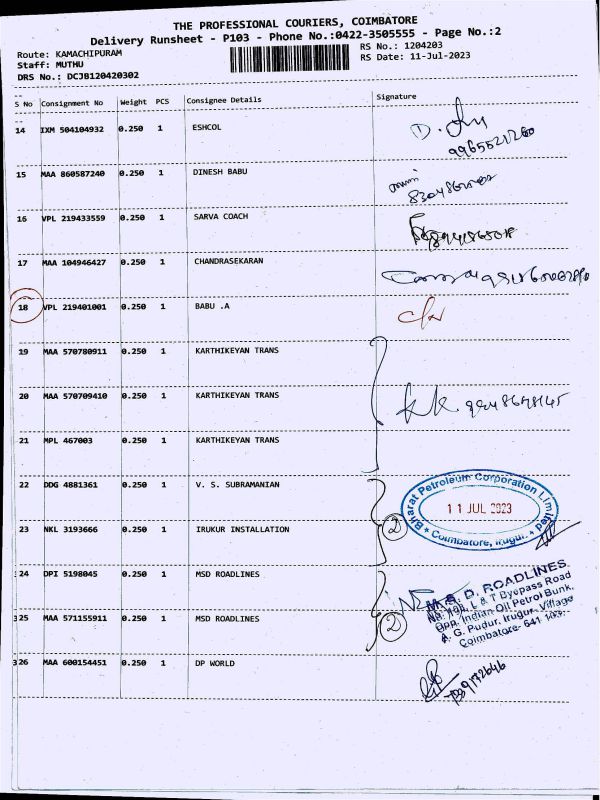 THE PROFESSIONAL COURIERS, COIMBATORE
Delivery Runsheet - P103 - Phone No.:0422-3505555 - Page No.:2
Route: KAMACHIPURAM
Staff: MUTHU
DRS No.: DCJB120420302
RS No.: 1204203
RS Date: 11-Jul-2023
S No Consignment No Weight PCS Consignee Details Signature
14 IXM 504104932 0.250 1 ESHCOL
15 MAA 860587240 0.250 1 DINESH BABU
16 VPL 219433559 0.250 1 SARVA COACH
17 MAA 104946427 0.250 1 CHANDRASEKARAN
18 VPL 219401001 0.250 1 BABU .A
19 MAA 570780911 0.250 1 KARTHIKEYAN TRANS
20 MAA 570709410 0.250 1 KARTHIKEYAN TRANS
21 MPL 467003 0.250 1 KARTHIKEYAN TRANS
22 DDG 4881361 0.250 1 V. S. SUBRAMANIAN
23 NKL 3193666 0.250 1 IRUKUR INSTALLATION
2
Bharat Petroleum Corporation Limited
11 JUL 2023
Coimbatore, Irugur.
24 DPI 5198045 0.250 1 MSD ROADLINES
325 MAA 571155911 0.250 1 MSD ROADLINES
2
D. ROADLINES
L & T Byepass Road
Opp. Indian Oil Petrol Bunk,
A. G. Pudur, Irugur, Village
Coimbatore- 641 103.
326 MAA 600154451 0.250 1 DP WORLD